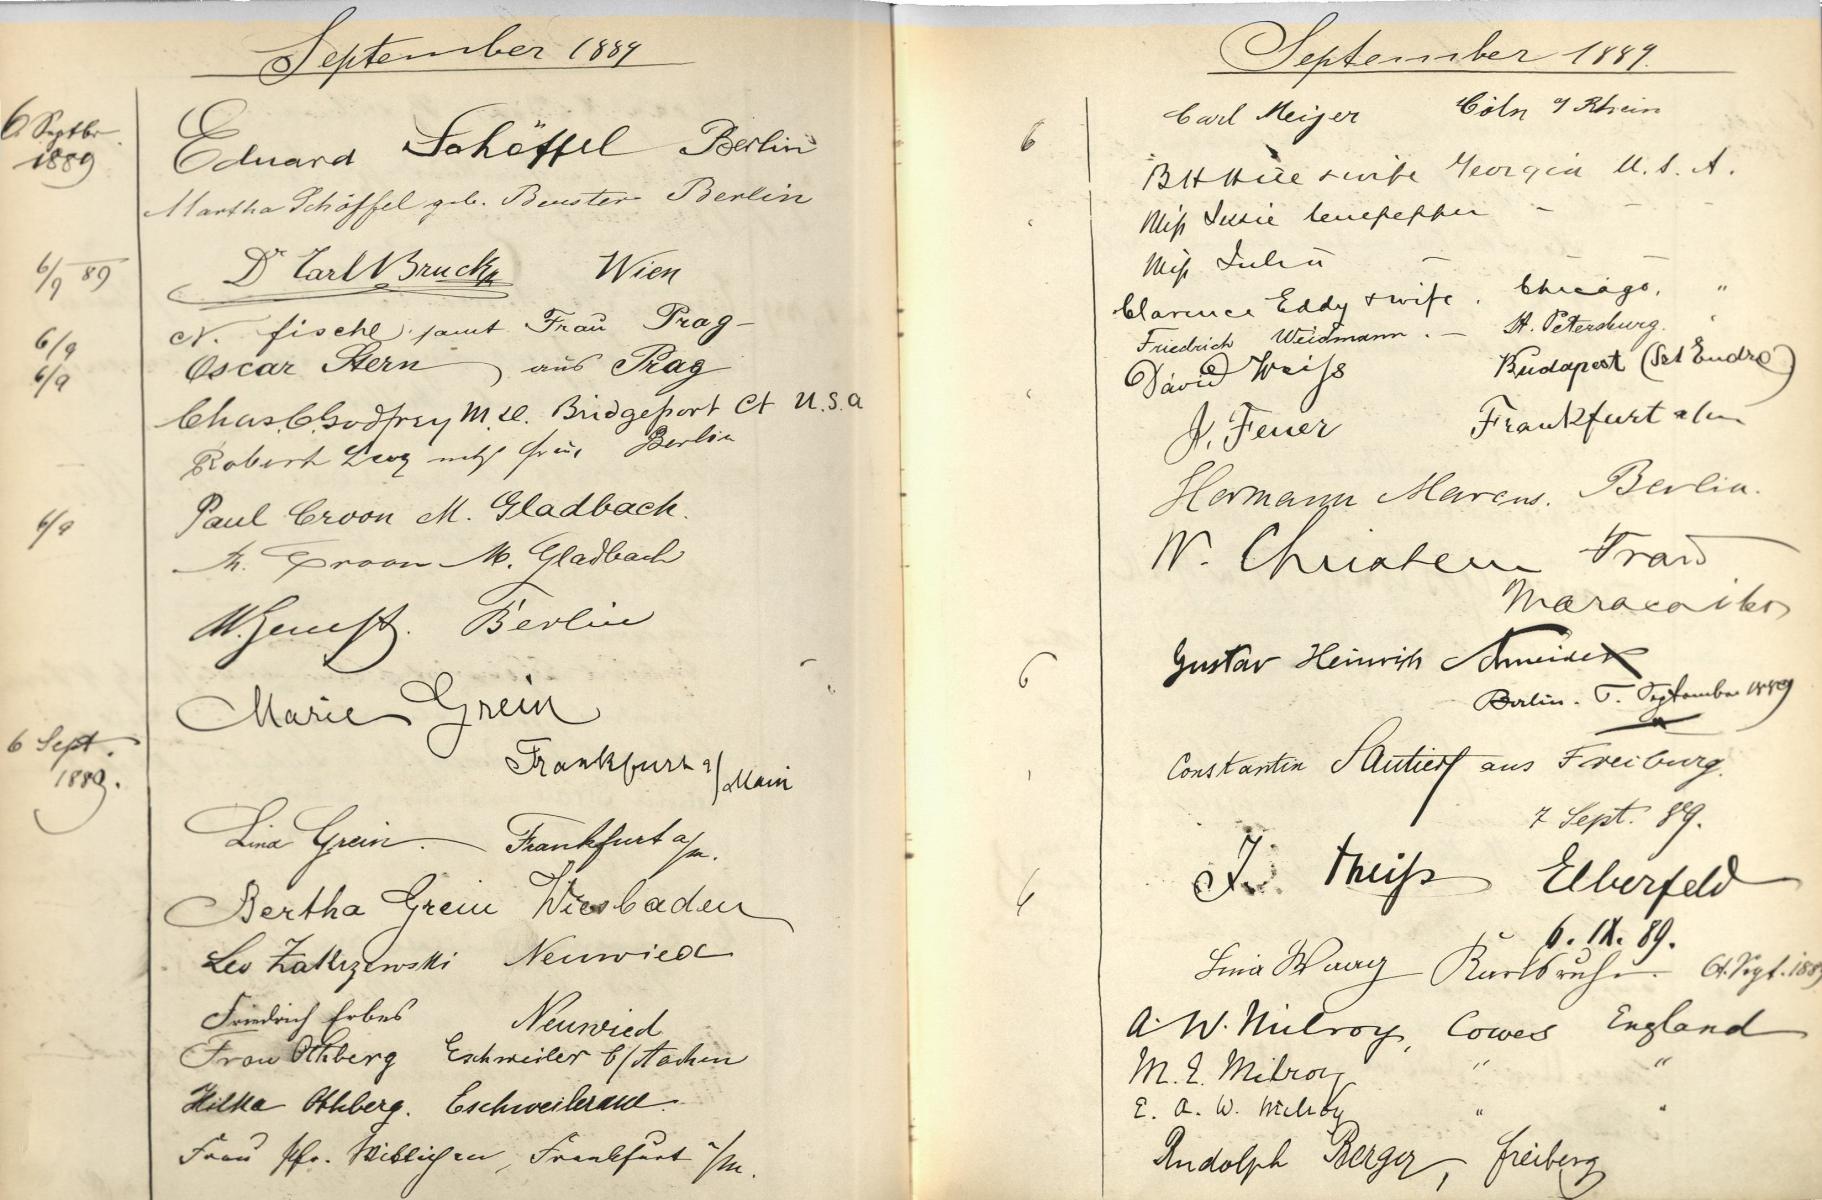 September 1889
6. Septbr.
1889
Eduard Schöffel Berlin
Martha Schöffel geb. Beuster Berlin
6/9 89
Dr Carl Bruck Wien
6/9
N. Fischl samt Frau Prag
6/9
Oscar Stern aus Prag
Chas. C. Godfrey M.D. Bridgeport Ct U.S.A
Robert Levy nebst Frau, Berlin
6/9
Paul Croon M. Gladbach.
Croon M. Gladbach
Berlin
Marie Grein
Frankfurt a/Main
6 Sept.
1889.
Lina Grein. Frankfurt a/M.
Bertha Grein Wiesbaden
Leo Zakrzewski Neuwied
Friedrich Erbes Neuwied
Frau Othberg Eschweiler b/Aachen
Hilka Othberg. Eschweileraue.
Frau Frankfurt a/M.
September 1889.
6
Carl Meijer Cöln a/Rhein
B H Hill & wife Georgia U. S. A.
Miss
Miss
Clarence Eddy & wife. Chicago, "
Friedrich Weidmann. — St. Petersburg.
Dávid Weiss Budapest (Szt Endre)
J. Feuer Frankfurt a/M
Hermann Marcus. Berlin.
W. Christern Frau
Maracaibo
6
Gustav Heinrich Schneider
Berlin. September 1889
Constantin Sautier aus Freiburg.
7 Sept. 89.
6
Theiss Elberfeld
6. IX. 89.
Lina Waag Karlsruhe. Sept. 1889
A. W. Milroy, Cowes England
M. E. Milroy " "
E. A. W. Milroy " "
Rudolph Berger, Freiberg